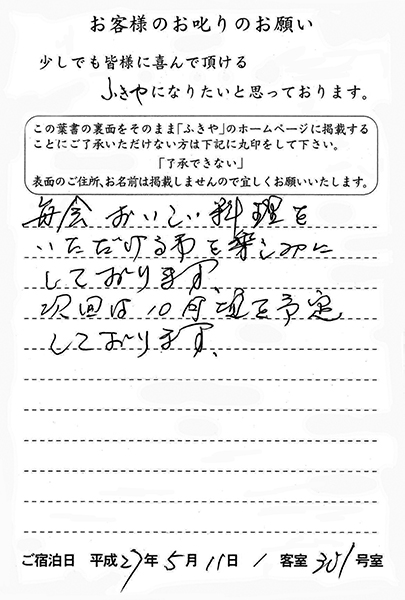 お客様のお叱りのお願い
少しでも皆様に喜んで頂ける
ふきやになりたいと思っております。
この葉書の裏面をそのまま「ふきや」のホームページに掲載する
ことにご了承いただけない方は下記に丸印をして下さい。
「了承できない」
表面のご住所、お名前は掲載しませんので宜しくお願いいたします。
毎会 おいしい料理を
いただける事を楽しみに
しております、
次回は10月頃を予定
しております、
ご宿泊日 平成27年5月11日 / 客室 301号室